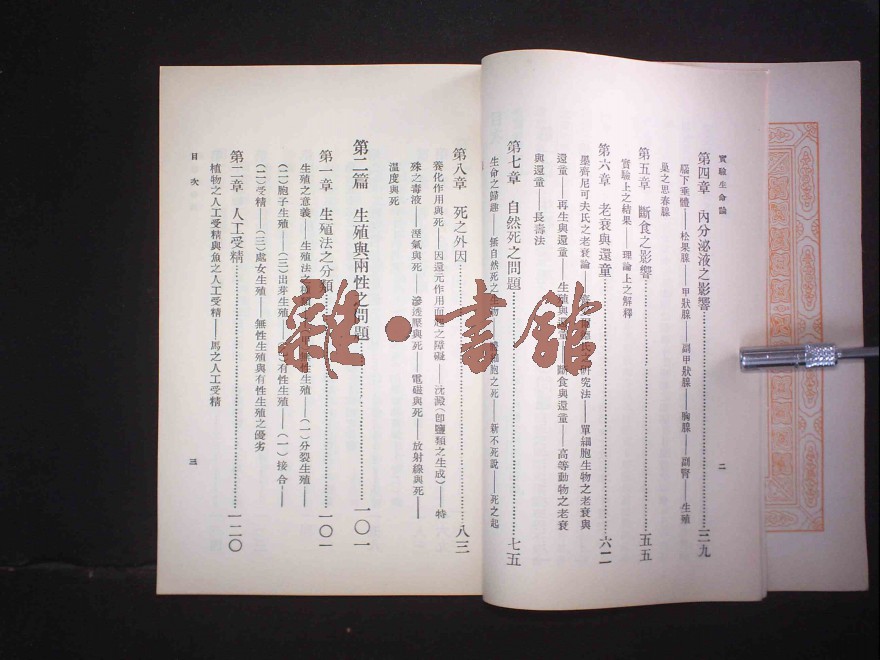 實驗生命論
二
第四章 內分泌液之影響……三九
腦下垂體——松果腺——甲狀腺——副甲狀腺——胸腺——副腎——生殖
巢之思春腺
第五章 斷食之影響……五五
實驗上之結果——理論上之解釋
第六章 老衰與還童……六二
墨齊尼可夫氏之老衰論 研究法——單細胞生物之老衰與
還童——再生與還童——生殖與還童——斷食與還童——高等動物之老衰
與還童——長壽法
第七章 自然死之問題……七五
生命之歸趨——無自然死之生物 細胞之死——新不死說——死之起
第八章 死之外因……八三
養化作用與死——因還元作用而起之障礙——沈澱(卽鹽類之生成)——特
殊之毒液——溼氣與死——滲透壓與死——電磁與死——放射線與死——
溫度與死
第二篇 生殖與兩性之問題……一〇一
第一章 生殖法之分類……一〇一
生殖之意義——生殖法之種類 無性生殖——(一)分裂生殖——
(二)胞子生殖——(三)出芽生殖—— 有性生殖——(一)接合——
(二)受精——(三)處女生殖——無性生殖與有性生殖之優劣
第二章 人工受精……一二〇
植物之人工受精與魚之人工受精——馬之人工受精
目次
三
雜·書館